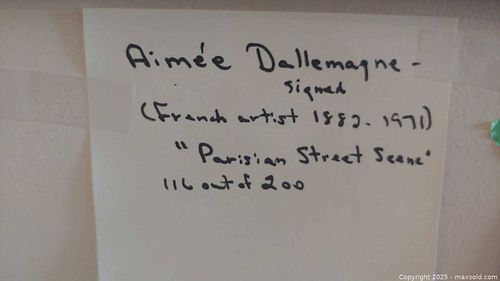 Aimée Dallemagne -
signed
(French artist 1882-1971)
"Parisian Street Scene"
116 out of 200
Copyright © 2025 - maxsold.com